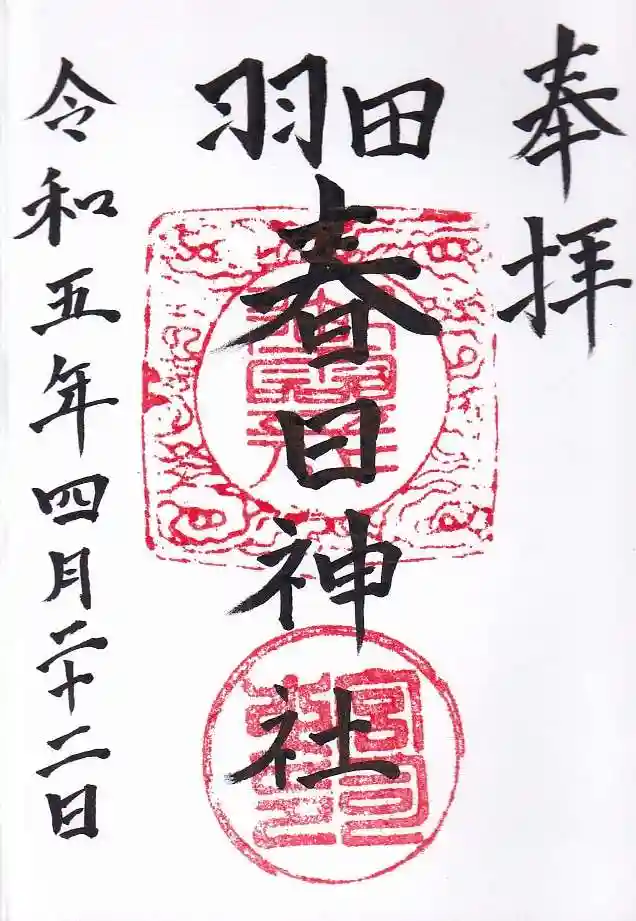 奉拝
羽田
春日神社
令和五年四月二十二日